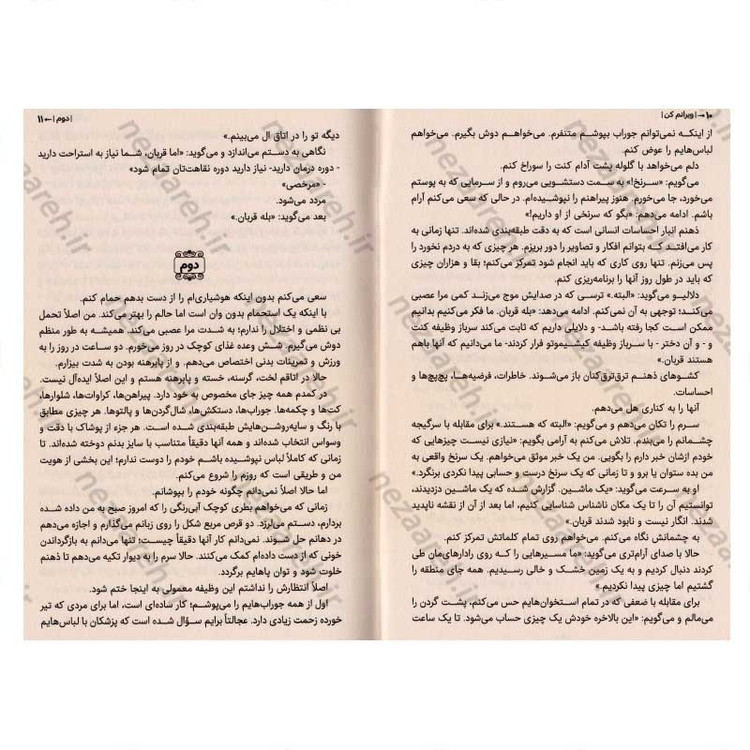 ۱۰ → | ویرانم کن |
از اینکه نمی‌توانم جوراب بپوشم متنفرم. می‌خواهم دوش بگیرم. می‌خواهم
لباس‌هایم را عوض کنم.
دلم می‌خواهد با گلوله پشت آدام کنت را سوراخ کنم.
می‌گویم: «سرنخ!» به سمت دستشویی می‌روم و از سرمایی که به پوستم
می‌خورد، جا می‌خورم. هنوز پیراهنم را نپوشیده‌ام. در حالی که سعی می‌کنم آرام
باشم. ادامه می‌دهم: «بگو که سرنخی از او داریم!»
ذهنم انبار احساسات انسانی است که به دقت طبقه‌بندی شده‌اند. تنها زمانی به
کار می‌افتند که بتوانم افکار و تصاویر را دور بریزم. هر چیزی که به دردم نخورد را
پس می‌زنم. تنها روی کاری که باید انجام شود تمرکز می‌کنم؛ بقا و هزاران چیزی
که باید در طول روز آنها را برنامه‌ریزی کنم.
دلالیو می‌گوید: «البته.» ترسی که در صدایش موج می‌زند کمی مرا عصبی
می‌کند؛ توجهی به آن نمی‌کنم. ادامه می‌دهد: «بله قربان. ما فکر می‌کنیم بدانیم
ممکن است کجا رفته باشد- و دلایلی داریم که ثابت می‌کند سرباز وظیفه کنت
و - و آن دختر - با سرباز وظیفه کیشیموتو فرار کردند- ما می‌دانیم که آنها باهم
هستند قربان.»
کشوهای ذهنم ترق‌ترق‌کنان باز می‌شوند. خاطرات، فرضیه‌ها، پچ‌پچ‌ها و
احساسات.
آنها را به کناری هل می‌دهم.
سرم را تکان می‌دهم و می‌گویم: «البته که هستند.» برای مقابله با سرگیجه
چشمانم را می‌بندم. تلاش می‌کنم به آرامی بگویم: «نیازی نیست چیزهایی که
خودم ازشان خبر دارم را بگویی. من یک خبر موثق می‌خواهم. یک سرنخ واقعی به
من بده ستوان یا برو و تا زمانی که یک سرنخ درست و حسابی پیدا نکردی برنگرد.»
او به سرعت می‌گوید: «یک ماشین. گزارش شده که یک ماشین دزدیدند،
توانستیم آن را تا یک مکان ناشناس شناسایی کنیم، اما بعد از آن از نقشه ناپدید
شدند. انگار نیست و نابود شدند قربان.»
به چشمانش نگاه می‌کنم. می‌خواهم روی تمام کلماتش تمرکز کنم.
حالا با صدای آرام‌تری می‌گوید: «ما مسیرهایی را که روی رادارهای‌مان طی
کردند دنبال کردیم و به یک زمین خشک و خالی رسیدیم. همه جای منطقه را
گشتیم اما چیزی پیدا نکردیم.»
برای مقابله با ضعفی که در تمام استخوان‌هایم حس می‌کنم، پشت گردن را
می‌مالم و می‌گویم: «این بالاخره خودش یک چیزی حساب می‌شود. تا یک ساعت
| دوم | ← ۱۱
دیگه تو را در اتاق ال می‌بینم.»
نگاهی به دستم می‌اندازد و می‌گوید: «اما قربان، شما نیاز به استراحت دارید
- دوره درمان دارید- نیاز دارید دوره نقاهت‌تان تمام شود»
- «مرخصی»
مردد می‌شود.
بعد می‌گوید: «بله قربان.»
دوم
سعی می‌کنم بدون اینکه هوشیاری‌ام را از دست بدهم حمام کنم.
با اینکه یک استحمام بدون وان است اما حالم را بهتر می‌کند. من اصلاً تحمل
بی نظمی و اختلال را ندارم؛ به شدت مرا عصبی می‌کند. همیشه به طور منظم
دوش می‌گیرم. شش وعده غذای کوچک در روز می‌خورم. دو ساعت در روز را به
ورزش و تمرینات بدنی اختصاص می‌دهم. و از پابرهنه بودن به شدت بیزارم.
حالا در اتاقم لخت، گرسنه، خسته و پابرهنه هستم و این اصلاً ایده‌آل نیست.
در کمدم همه چیز جای مخصوص به خود دارد. پیراهن‌ها، کراوات‌ها، شلوارها،
کت‌ها و چکمه‌ها. جوراب‌ها، دستکش‌ها، شال‌گردن‌ها و پالتوها. هر چیزی مطابق
با رنگ و سایه‌روشن‌هایش طبقه‌بندی شده است. هر جزء از پوشاک با دقت و
وسواس انتخاب شده‌اند و همه آنها دقیقاً متناسب با سایز بدنم دوخته شده‌اند. تا
زمانی که کاملاً لباس نپوشیده باشم خودم را دوست ندارم؛ این بخشی از هویت
من و طریقی است که روزم را شروع می‌کنم.
اما حالا اصلاً نمی‌دانم چگونه خودم را بپوشانم.
زمانی که می‌خواهم بطری کوچک آبی‌رنگی را که امروز صبح به من داده شده
بردارم، دستم می‌لرزد. دو قرص مربع شکل را روی زبانم می‌گذارم و اجازه می‌دهم
در دهانم حل شوند. نمی‌دانم کار آنها دقیقاً چیست؛ تنها می‌دانم به بازگرداندن
خونی که از دست داده‌ام کمک می‌کنند. حالا سرم را به دیوار تکیه می‌دهم تا ذهنم
خلوت شود و توان پاهایم برگردد.
اصلاً انتظارش را نداشتم این وظیفه معمولی به اینجا ختم شود.
اول از همه جوراب‌هایم را می‌پوشم؛ کار ساده‌ای است، اما برای مردی که تیر
خورده زحمت زیادی دارد. عجالتاً برایم سؤال شده است که پزشکان با لباس‌هایم
nezaareh.ir